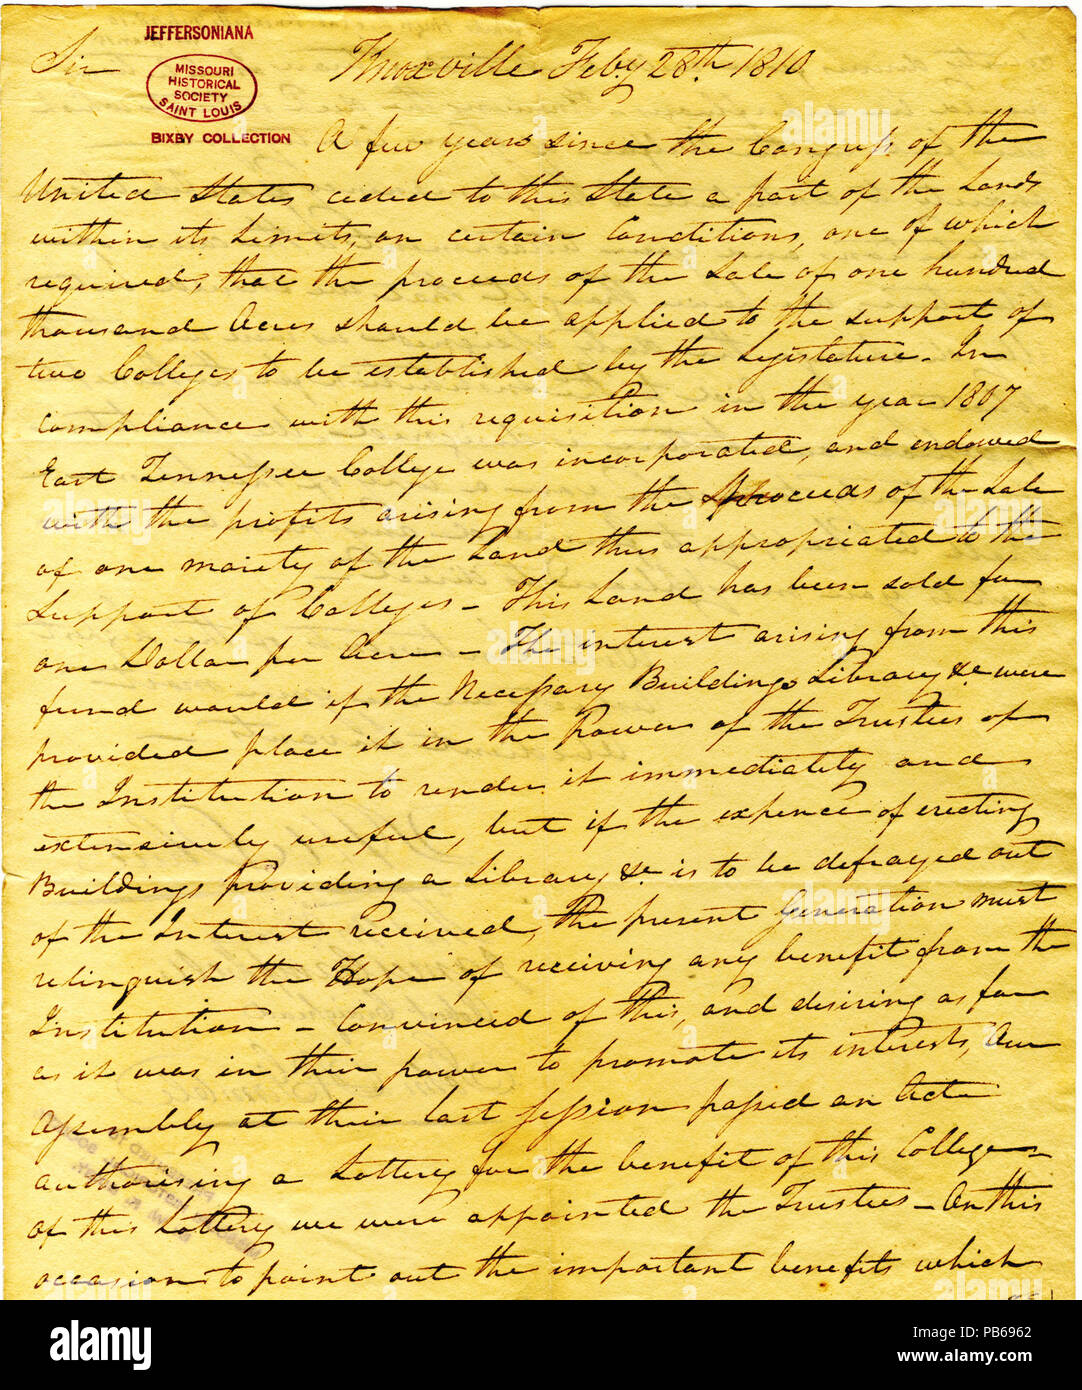 JEFFERSONIANA
MISSOURI
HISTORICAL
SOCIETY
SAINT LOUIS
BIXBY COLLECTION
Sir Knoxville Feby 28th 1810
A few years since the Congress of the
United States ceded to this State a part of the Lands
within its Limits, on certain Conditions, one of which
required, that the proceeds of the Sale of one hundred
thousand Acres should be applied to the support of
two Colleges to be established by the Legislature. In
compliance with this requisition in the year 1807
East Tennessee College was incorporated, and endowed
with the profits arising from the proceeds of the Sale
of one moiety of the Land thus appropriated to the
support of Colleges — This Land has been sold for
one Dollar per Acre — The interest arising from this
fund would if the Necessary Buildings Library &c were
provided place it in the Power of the Trustees of
the Institution to render it immediately and
extensively useful, but if the expence of erecting
Buildings providing a Library &c is to be defrayed out
of the Interest received, the present Generation must
relinquish the Hope of receiving any benefit from the
Institution — Convinced of this, and desiring as far
as it was in their power to promote its interests, Our
Assembly at their last session passed an Act
authorising a Lottery for the benefit of this College —
Of this Lottery we were appointed the Trustees — On this
occasion to point out the important benefits which
alamy
Image ID: PB6962
www.alamy.com